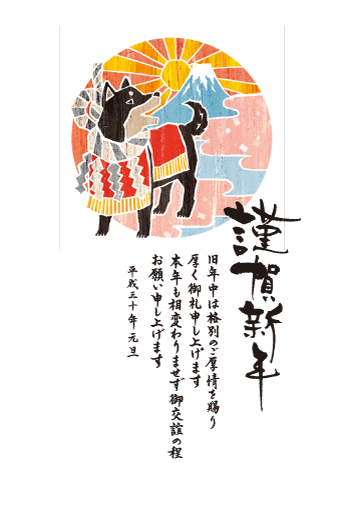 謹賀新年
旧年中は格別のご厚情を賜り
厚く御礼申し上げます
本年も相変わりませず御交誼の程
お願い申し上げます
平成三十年元旦